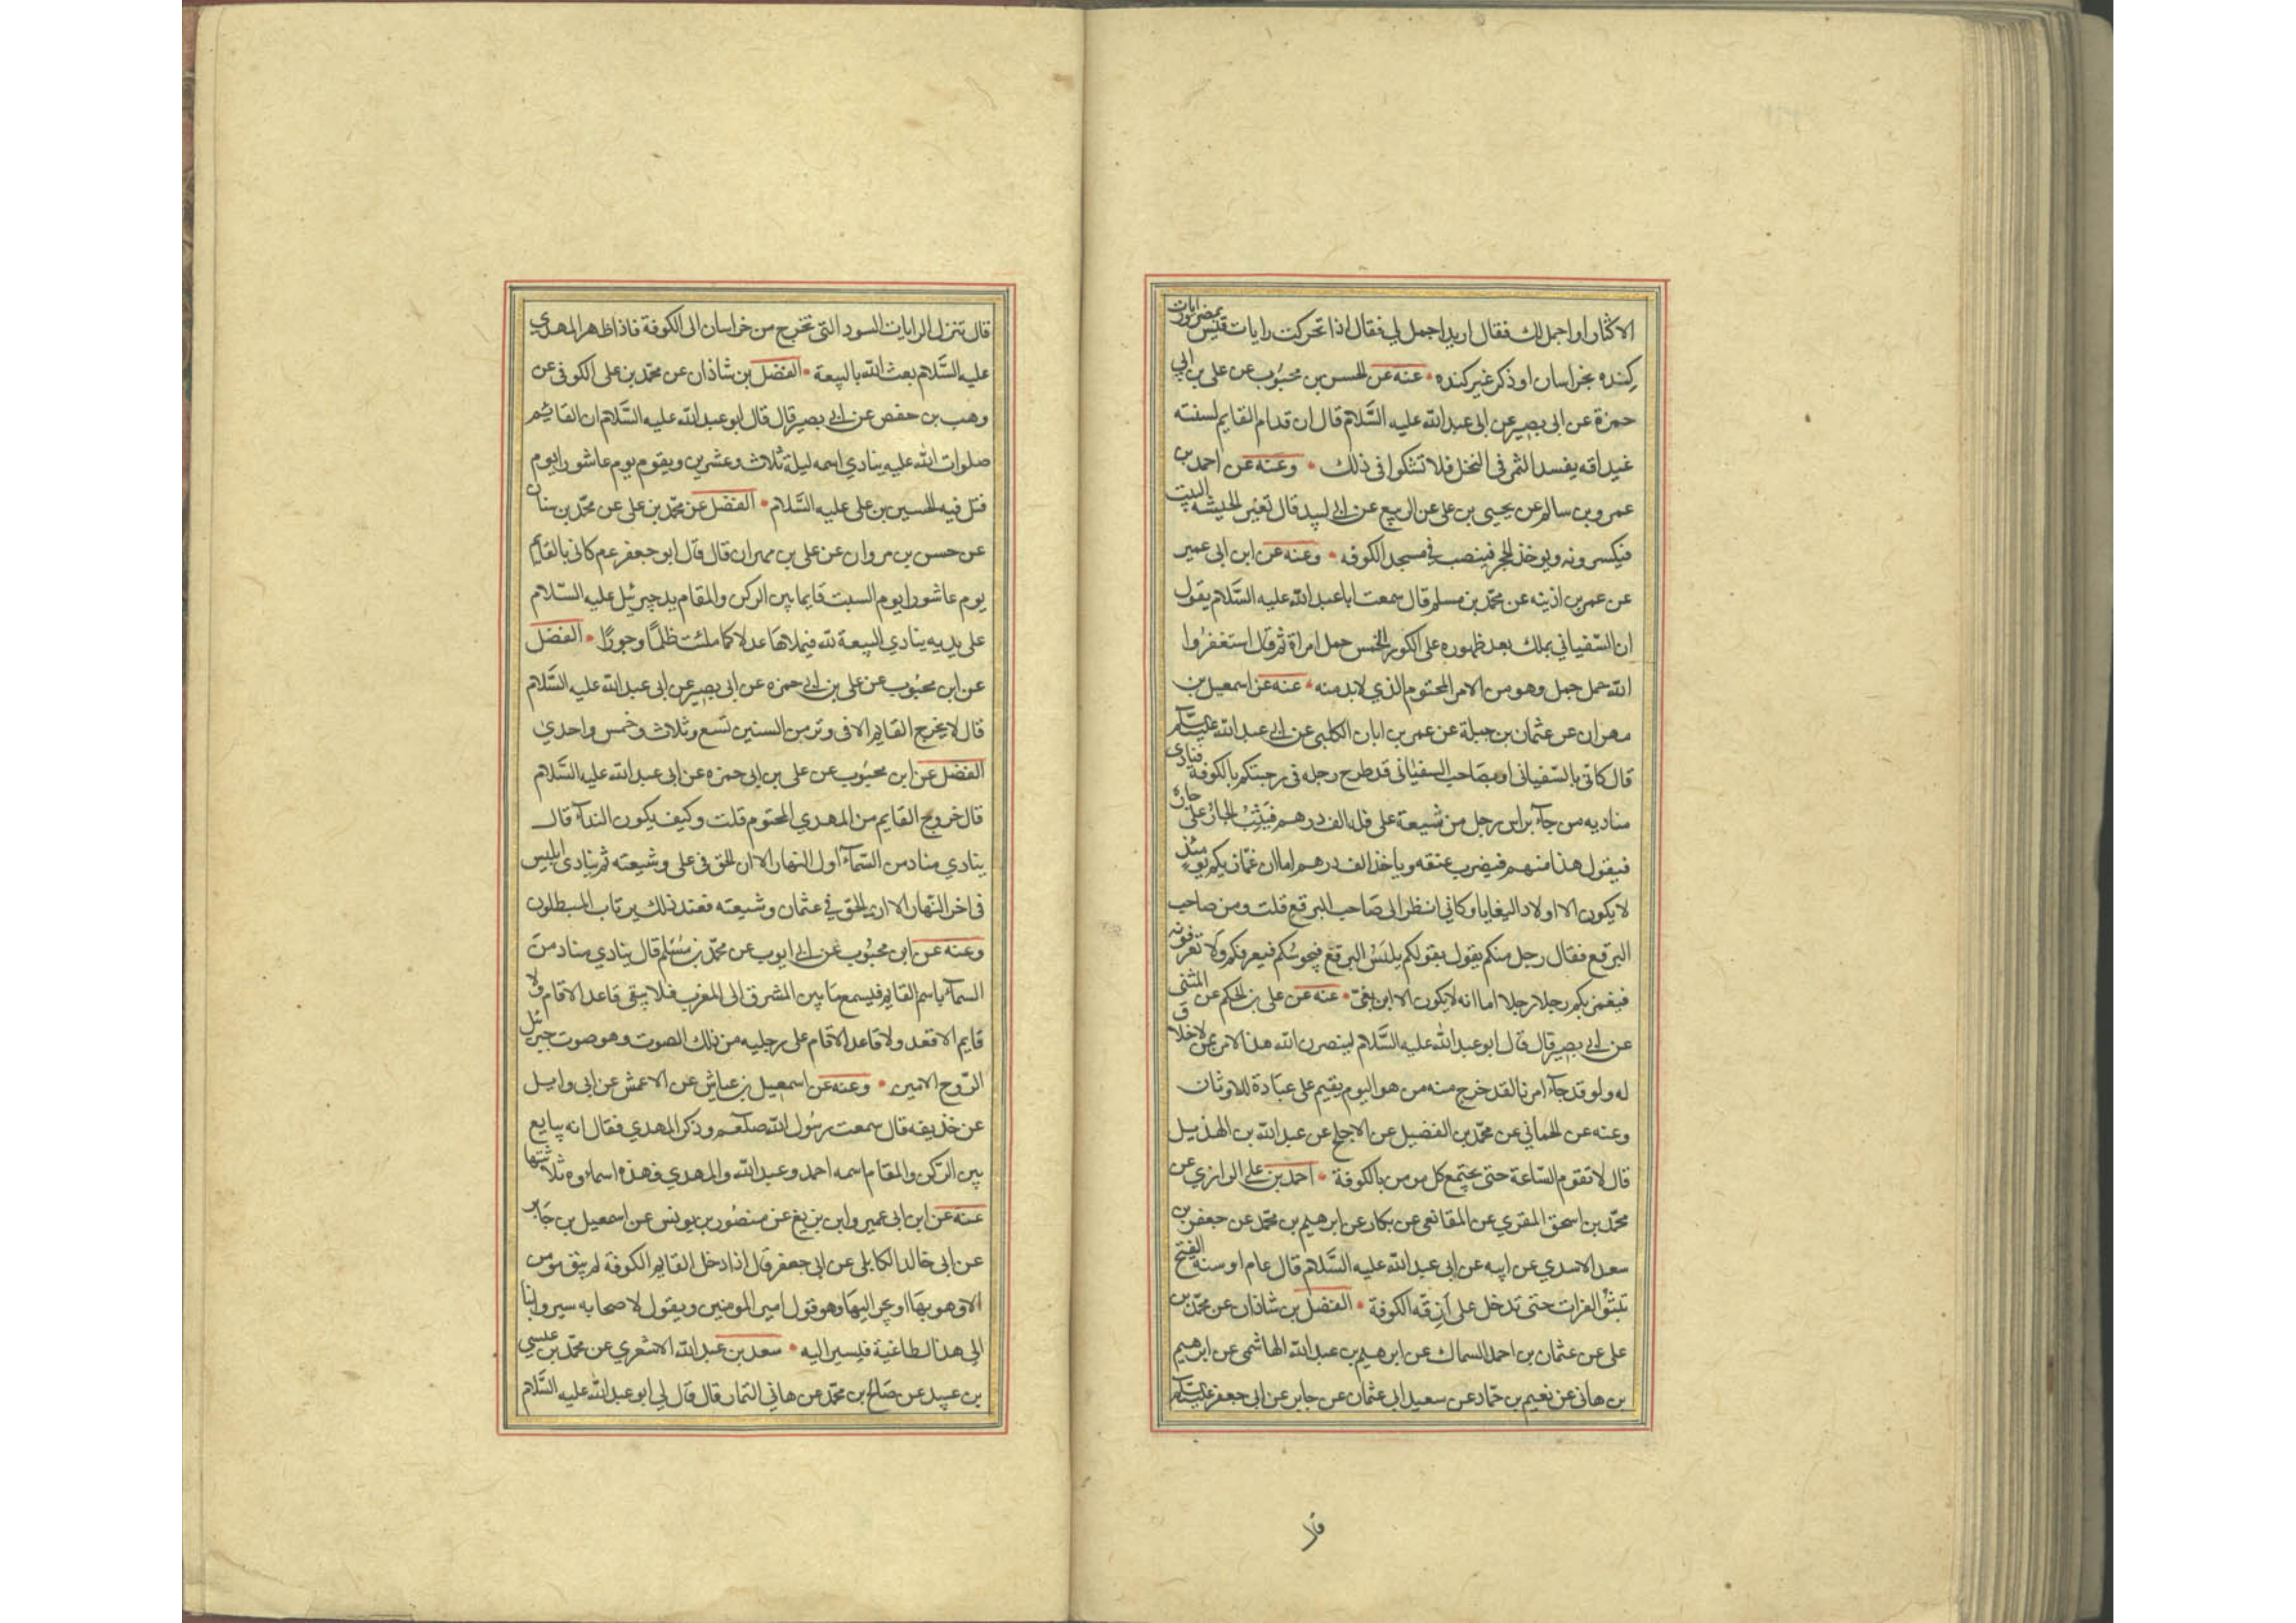 الاكثار او اجمل لك فقال اريد اجمل لي فقال اذا تحركت رايات قيس بمصر ورايات
كِنده بخراسان او ذكر غير كنده • عنه عن الحسن بن محبُوب عن على بن ابي
حمزة عن ابى بصير عن ابى عبد الله عليه السَّلام قال ان قدام القايم لسنته
غيداقه يفسد الثمر فى النخل فلا تشكوا فى ذلك • وعنه عن احمد بن
عمرو بن سالم عن يحيى بن على عن الربيع عن ابي لبيد قال تغير الحبشه البيت
فيكسرونه ويوخذ الحجر فينصب في مسجد الكوفه • وعنه عن ابن ابى عمير
عن عمر بن اذينه عن محمّد بن مسلم قال سمعت ابا عبد الله عليه السَّلام يقول
ان السّفياني يملك بعد ظهوره على الكور الخمس حمل امراة ثم قال استغفرُوا
الله حمل جمل وهو من الامر المحتوم الذي لا بد منه • عنه عن اسمعيل بن
مهران عن عثمان بن جبلة عن عمر بن ابان الكلبى عن ابي عبد الله عليه السّلم
قال كانّي بالسّفيانى او بصَاحب السفيٰانى قد طرح رجله فى رحبتكم بالكوفة فنادى
مناديه من جآء براس رجل من شيعة على فله الف درهم فيَثِبُ الجارُ على جاره
فيقول هذا منهم فيضرب عنقه وياخذ الف درهم اما ان عمّاريكم يومئذ
لا يكون الا اولاد البغايا وكاني انظر الى صَاحب البرقع قلت ومن صاحب
البرقع فقال رجل منكم يقول بقولكم يلبَسُ البرقع فيحوسُكم فيعرفكم ولا تعرفونه
فيغمز بكم رجلا رجلا اما انه لا يكون الا ابن بغىّ • عنه عن على بن الحكم عن المثنى
عن ابي بصير قال قال ابو عبد الله عليه السَّلام لينصرن الله هذا الامر بمن لا خلاق
له ولو قد جآء امرنا لقد خرج منه من هو اليوم يقيم على عبَادة للاوثان
وعنه عن الحمانى عن محمّد بن الفضيل عن الاجلح عن عبد الله بن الهذيل
قال لا تقوم السّاعة حتى يجتمع كل مومن بالكوفة • احمد بن علي الرازي عن
محمّد بن اسحق المقري عن المقانعى عن بكار عن ابرهيم بن محمّد عن جعفر بن
سعد الاسدي عن ابيه عن ابى عبد الله عليه السَّلام قال عام او سنه الفتح
تنبثق الفرات حتى تدخل على ازقّه الكوفة • الفضل بن شاذان عن محمّد بن
على عن عثمان بن احمد السماك عن ابرهيم بن عبد الله الهاشمى عن ابرهيم
بن هانى عن نعيم بن حمّاد عن سعيد ابى عثمان عن جابر عن ابى جعفر عليه السّلم
قال تنزل الرايات السود التى تخرج من خراسان الى الكوفة فاذا ظهر المهدي
عليه السَّلام بعث الله بالبيعة • الفضل بن شاذان عن محمّد بن على الكوفى عن
وهب بن حفص عن ابي بصير قال قال ابو عبد الله عليه السَّلام ان القائم
صلوات الله عليه ينادي اسمه ليلة ثلاث وعشرين ويقوم يوم عاشورا يوم
قتل فيه الحسين بن على عليه السَّلام • الفضل عن محمّد بن على عن محمّد بن سنان
عن حسن بن مروان عن على بن مهران قال قال ابو جعفر عم كانى بالقائم
يوم عاشورا يوم السبت قايما بين الركن والمقام يد جبرئيل عليه السّلام
على يديه ينادي البيعة لله فيملاهَا عدلا كما ملئت ظلمًا وجورًا • الفضل
عن ابن محبُوب عن على بن ابي حمزه عن ابى بصير عن ابى عبد الله عليه السَّلام
قال لا يخرج القايم الا فى وتر من السنين تسع وثلاث وخمس واحدي
الفضل عن ابن محبُوب عن على بن ابى حمزه عن ابى عبد الله عليه السَّلام
قال خروج القايم من المهدي المحتوم قلت وكيف يكون الندآء قال
ينادي مناد من السّمآء اول النهار الا ان الحق فى على وشيعته ثم ينادى ابليس
فى اخر النّهار الا ان الحق في عثمان وشيعته فعند ذلك يرتاب المبطلون
وعنه عن ابن محبُوب عن ابي ايوب عن محمّد بن مُسلم قال ينادي مناد من
السمآء باسم القايم فيسمع مَا بين المشرق الى المغرب فلا يبقى قاعد الا قام ولا
قايم الا قعد ولا قاعد الا قام على رجليه من ذلك الصوت وهو صوت جبرئل
الرّوح الامين • وعنه عن اسمعيل بن عياش عن الاعمش عن ابى وايل
عن حذيفه قال سمعت رسُول الله صلعم وذكر المهدي فقال انه يبايع
بين الركن والمقام اسمه احمد وعبد الله والمهدي فهذه اسماوه ثلاثتها
عنه عن ابن ابى عمير وابن بزيع عن منصُور بن يونس عن اسمعيل بن جَابر
عن ابى خالد الكابلى عن ابى جعفر قال اذا دخل القايم الكوفة لم يبق مومن
الا وهو بهَا او يجى اليهَا وهو قول امير المومنين ويقول لاصحابه سيروا بنا
الى هذا الطاغية فليسير اليه • سعد بن عبد الله الاشعري عن محمّد بن عيسى
بن عبيد عن صَالح بن محمّد عن هاني التمار قال قال لي ابو عبد الله عليه السَّلام